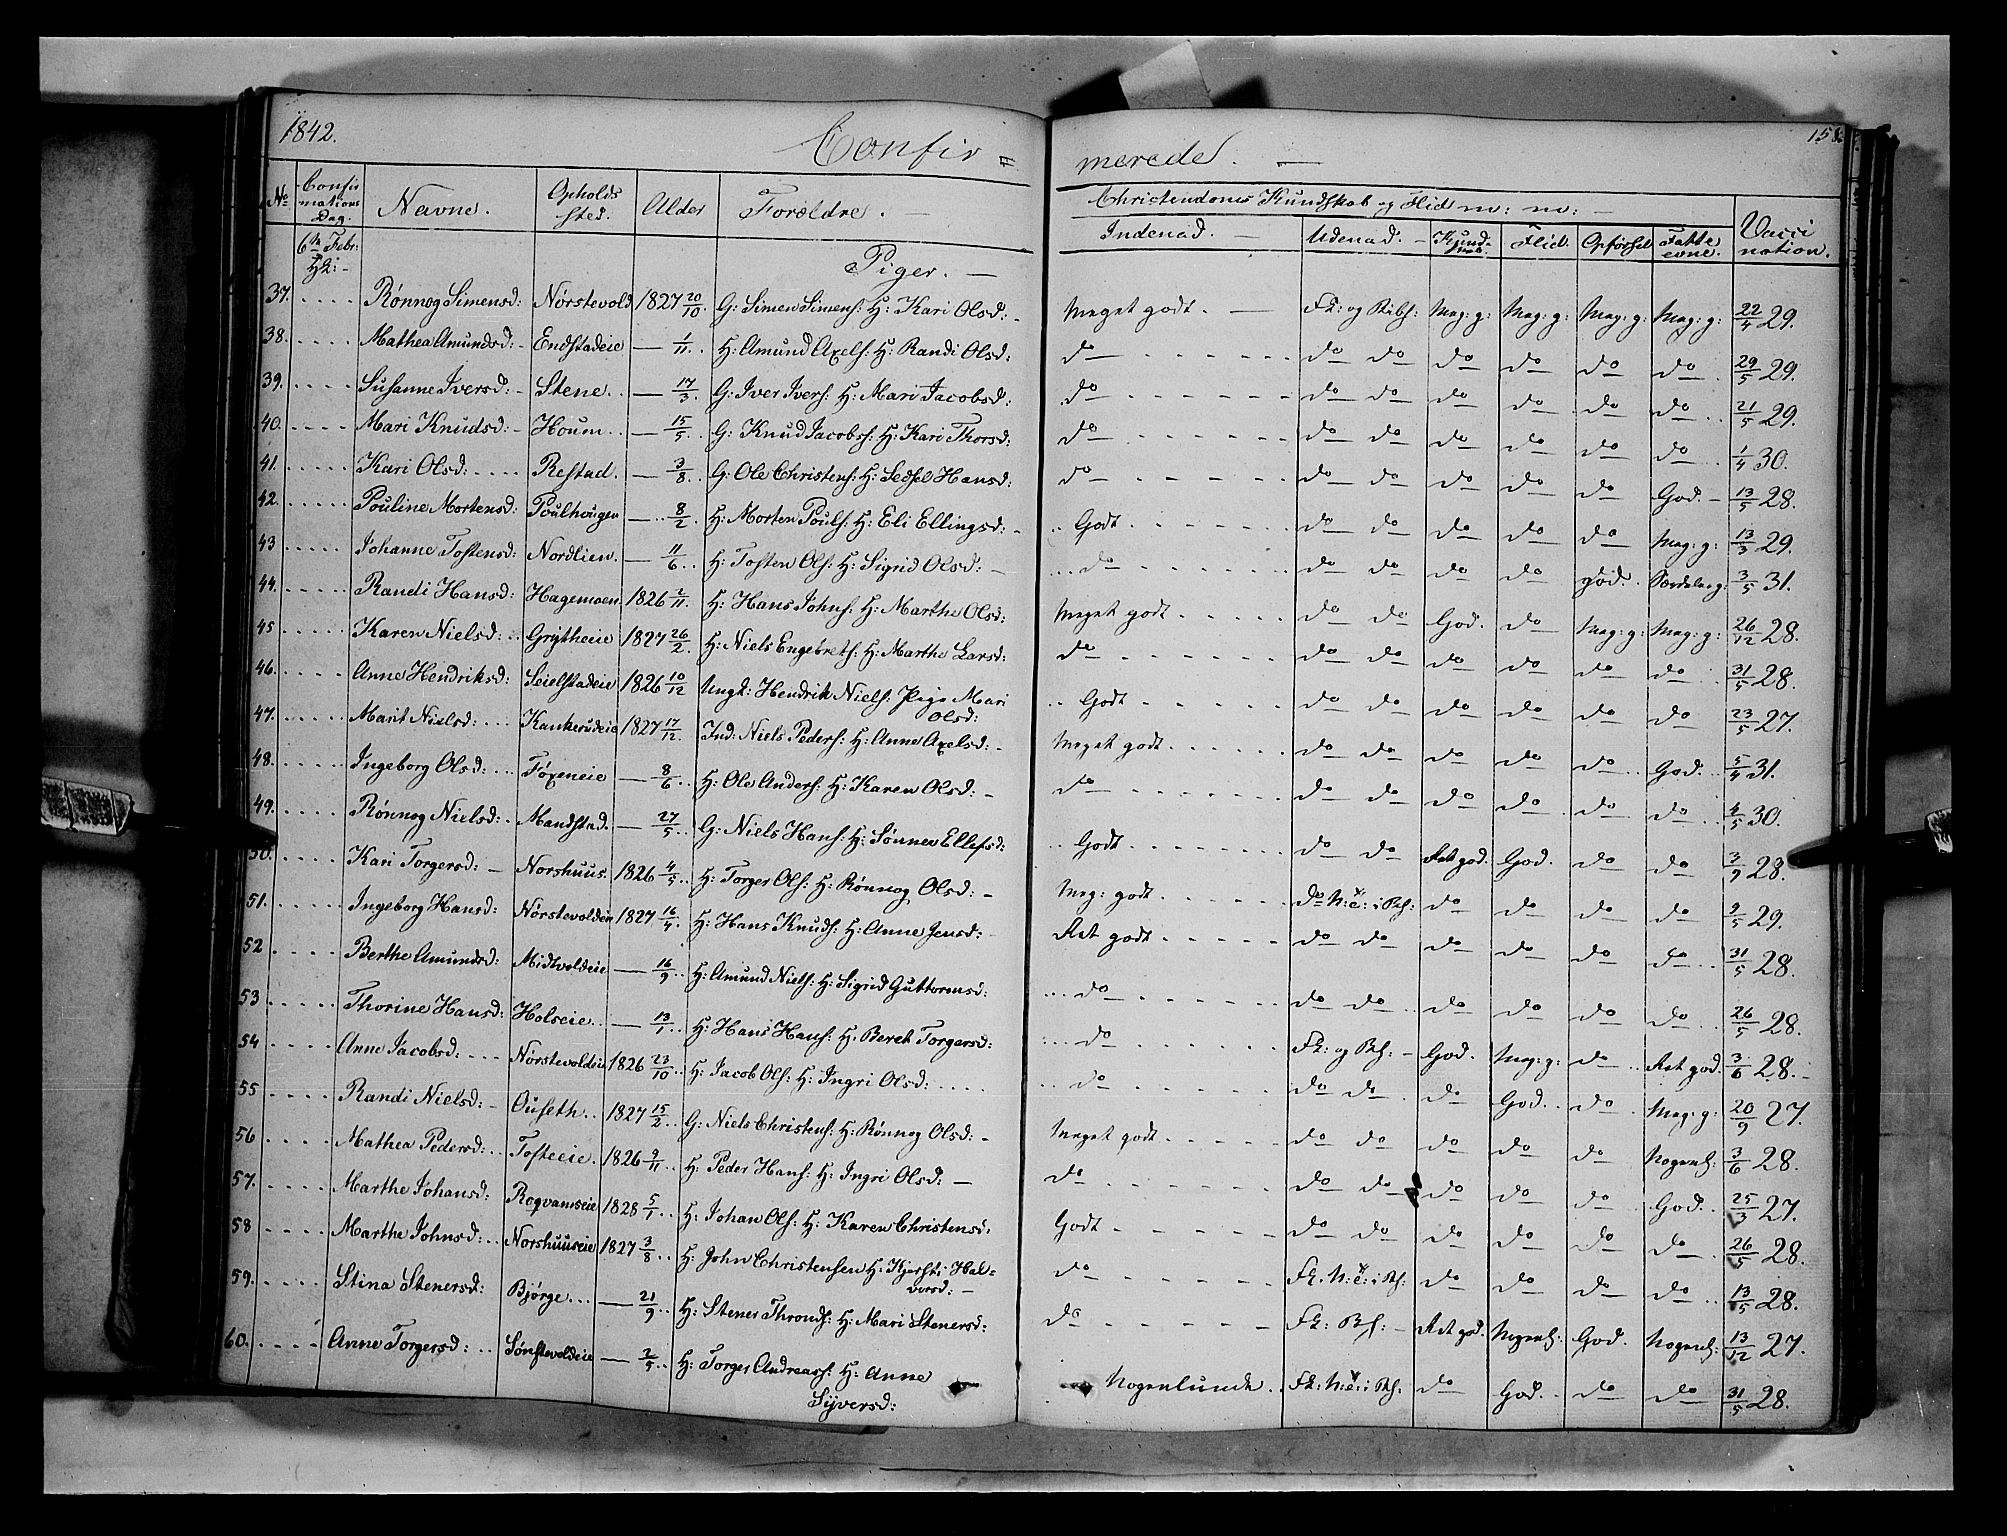 1842. Confir = merede. — 158.
No Confir mations Dag. Navne. Opholds sted. Alder Forældre. — Christendoms Kundskab og Flid m: m: — Vacci nation.
Indenad. — Udenad. — Kund- skab. Flid. Opførsel Fatte evne.
6te Febr:
Piger. —
37. Rønnog Simensd: Nørstevold 1827 20/10. G: Simen Simens: H: Kari Olsd: - Meget godt. — Fk: og Bibh: Meg: g: Meg: g: Meg: g: Meg: g: 22/4 29.
38. Mathea Amundsd: - Endstadeie — 1/11. H: Amund Axels: H: Randi Olsd: do do do do do do do 29/5 29.
39. Susanne Iversd: - Stene. — 17/3. G: Iver Ivers: H: Mari Jacobsd: do do do do do do do 21/5 29.
40. Mari Knudsd: - Houm — 15/5. G: Knud Jacobs: H: Kari Thorsd: do do do do do do do 1/4 30.
41. Kari Olsd: Restad. — 3/8. G: Ole Christens: H: Sedsel Hansd: do do do do do do God. - 13/5 28.
42. Pouline Mortensd: Poulhougen — 8/2. H: Morten Pouls: H: Eli Ellingsd: - Godt do do do do do Meg: g: 13/3 29.
43 Johanne Tostensd: Nordlien. — 11/6. H: Tosten Ols: H: Sigrid Olsd: — do do do do do god. 3/5 31.
44. Randi Hansd: Hagemoen 1826 2/11. H: Hans Johns: H: Marthe Olsd: Meget godt do do God. do Meg: g: Meg: g: 26/12 28.
45 Karen Nielsd: Grytheeie 1827 26/2. H: Niels Engebrets: H: Marthe Larsd: do do do do do do do 31/5 28.
46. Anne Hendriksd: Seielstadeie 1826 10/12 Ungk: Hendrik Niels: Pige Mari Olsd: Godt do do do do do do 23/5 27.
47. Marit Nielsd: Kankerudeie 1827 17/12. Ind: Niels Peders: H: Anne Axelsd: - Meget godt do do do do do God. 5/4 31.
48. Ingeborg Olsd: Foxeneie — 8/6 H: Ole Anders: H: Karen Olsd: - do do do do do do do 4/5 30.
49. Rønnog Nielsd: Mandstad. — 27/5 G: Niels Hans: H: Sønnev Ellefsd: Godt do do Ret god. God. do do 3/9 28.
50. Kari Torgersd: — Norshuus. 1826 4/5 H: Torger Ols: H: Rønnog Olsd: - Meg: godt do do do do do 9/5 29.
51. Ingeborg Hansd: Nørstevoldeie 1827 16/4. H: Hans Knuds: H: Anne Jensd: Ret godt do do do do do do 31/5 28.
52 Berthe Amundsd: Midtvoldeie — 16/9 H: Amund Niels: H: Sigrid Guttormsd: do do do do do do do 26/5 28.
53 Thorine Hansd: Holseie — 13/1 H: Hans Hans: H: Beret Torgersd: do Fk: og Bh: - God. Meg: g: do Ret god. 3/6 28.
54 Anne Jacobsd: Nørstevoldeie 1826 23/10 H: Jacob Ols: H: Ingri Olsd: do do do do God. do Meg: g: 20/9 27.
55 Randi Nielsd: - Ouseth 1827 15/2 G: Niels Christens: H: Rønnog Olsd: - Meget godt do do do do do Nogenl: 3/6 28.
56 Mathea Pedersd: Tosteeie. 1826 9/11 H: Peder Hans: H: Ingri Olsd: — do do do do do do God. 25/3 27.
57. Marthe Johansd: Rogvamseie 1828 5/1 H: Johan Ols: H: Karen Christensd. Godt do do do do do do 26/5 28.
58 Marthe Johnsd: Norshuuseie 1827 3/8 H: John Christensen H: Kjersti Hal= vorsd: — do do do do do 13/5 28.
59. Stina Stenersd: Bjørge — 21/9 H: Stener Thronds: H: Mari Stenersd: do Fk: Bh: - Ret god. Nogenl: God. Nogenl: 13/12 27.
60. Anne Torgersd: Sønstevoldeie — 2/5 H: Torger Andreass: H: Anne Syversd: Nogenlunde do God. do do 31/5 28.